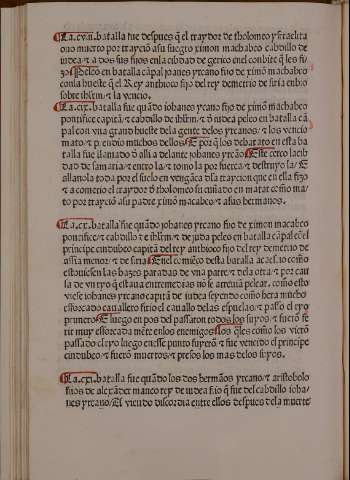 La.cviij.batalla fue despues q̃l traydor de tholomeo y sraelita
ouo muerto por trayciõ a su suegro ximon machabeo cabdillo de
iudea ⁊ a dos sus fijos en la cibdad de gerico en el conbite q̃ les fi
zo Peleo en batalla cãpal joanes yrcano fijo de ximõ machabeo
con la hueste q̃ el Rey anthioco fijo del rey demetrio de siria enbio
sobre ihr̃lm ⁊ la vencio.
La.cix.batalla fue quãdo iohanes yrcano fijo de ximõ machabeo
pontifice capitã ⁊ cabdillo de ihr̃lm ⁊ õ iudea peleo en batalla cã
pal con vna grand hueste de la gente de los yrcanos ⁊ los vencio
mato ⁊ p̃endio muchos dellos E por q̃ los debarato en esta ba
talla fue llamado õ alli adelante iohanes yrcão Este cerco la cib
dad de samaria ⁊ entro la ⁊ tomo la por fuerça ⁊ destruyo la E
allanola toda por el suelo en vengãça dla traycion que en ella fizo
⁊ a cometio el traydor õ tholomeo su cuñado en matar como ma
to por trayciõ a su padre ximõ macabeo ⁊ a sus hermanos.
La.cx.batalla fue quãdo johanes yrcano fijo de ximon macabeo
pontifice ⁊ cabdillo õ ihr̃lm ⁊ de juda peleo en batalla cãpal cõ el
principe cindubeo capitã del rey anthioco fijo del rey demetrio de
assia menor ⁊ de siria En el comẽço desta batalla acaescio como
estouiesen las hazes paradas de vna parte ⁊ dela otra ⁊ por cau
sa de vn ryo q̃ estaua entremedias nõ se atreuia pelear. como esto
viese johanes yrcano capitã de iudea seyendo como hera mucho
efforcado cauallero firio el cauallo de las espuelas ⁊ passo el ryo
primero E luego en pos del passaron todos los suyos ⁊ fuerõ fe
rir muy efforcada mẽte en los enemigos los q̃les como los vierõ
passado el ryo luego en esse punto fuyerõ ⁊ fue vencido el principe
cindubeo ⁊ fuerõ muertos ⁊ presos los mas delos suyos.
La.cxi.batalla fue quãdo los dos hermãos yrcano ⁊ aristobolo
fijos de alexãder maneo rey de iudea fijo q̃ fue del cabdillo joha
nes yrcano El viendo discordia entre ellos despues dela muerte